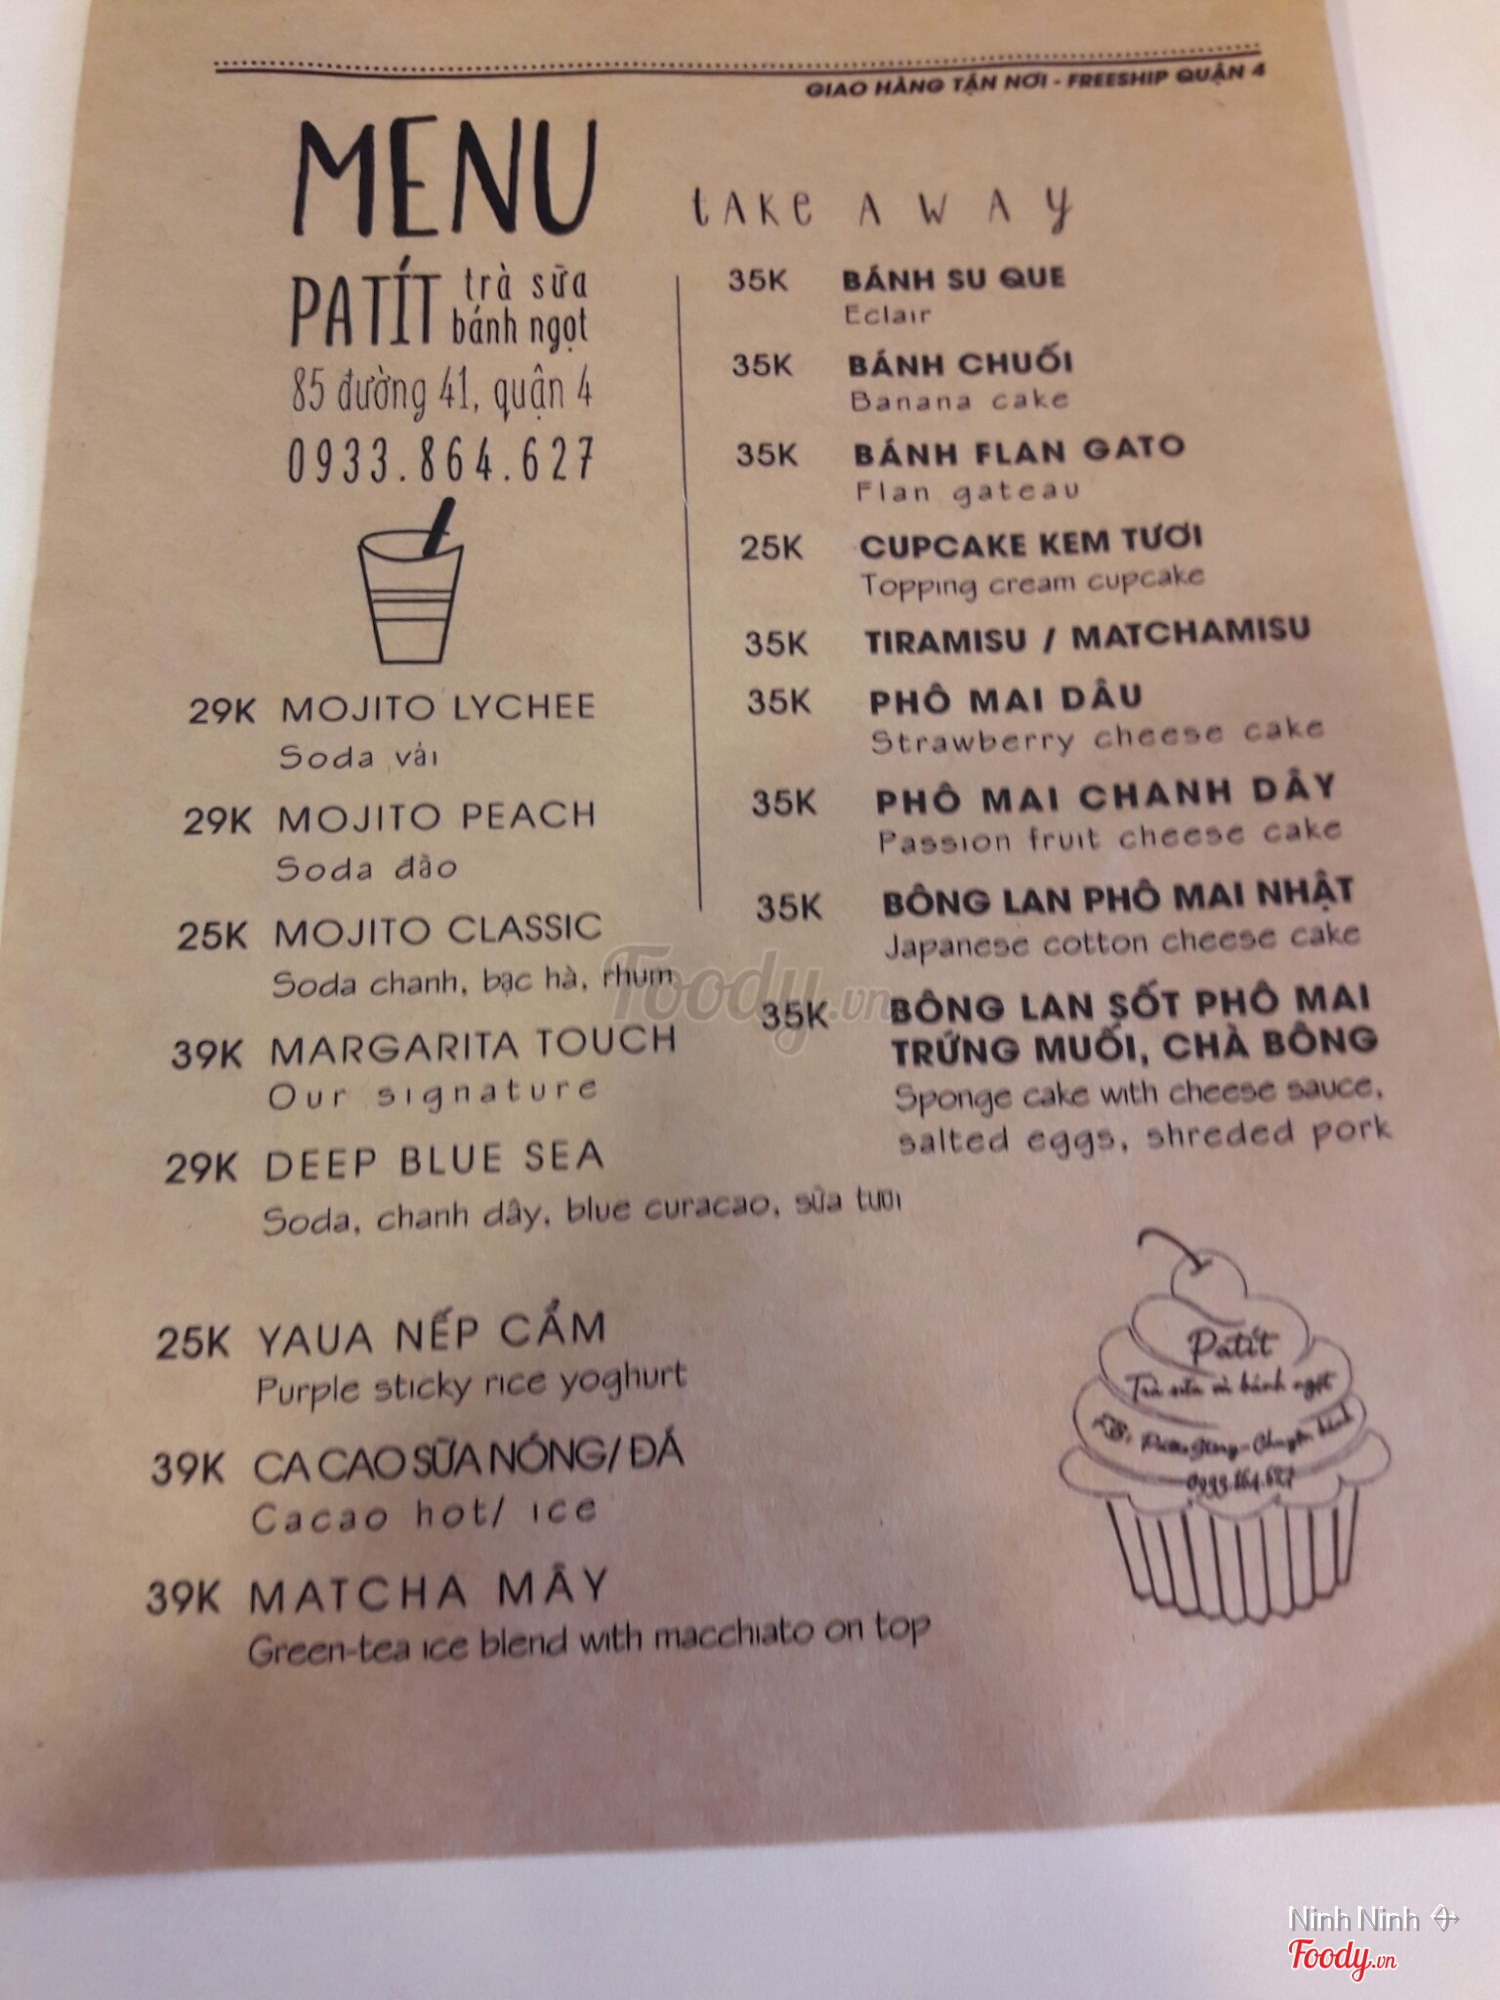 GIAO HÀNG TẬN NƠI - FREESHIP QUẬN 4
MENU
PATÍT trà sữa
bánh ngọt
85 đường 41, quận 4
0933.864.627
29K MOJITO LYCHEE
Soda vải
29K MOJITO PEACH
Soda đào
25K MOJITO CLASSIC
Soda chanh, bạc hà, rhum
39K MARGARITA TOUCH
Our signature
29K DEEP BLUE SEA
Soda, chanh dây, blue curacao, sữa tươi
25K YAUA NẾP CẨM
Purple sticky rice yoghurt
39K CA CAO SỮA NÓNG/ ĐÁ
Cacao hot/ ice
39K MATCHA MÂY
Green-tea ice blend with macchiato on top
take AWAY
35K BÁNH SU QUE
Eclair
35K BÁNH CHUỐI
Banana cake
35K BÁNH FLAN GATO
Flan gateau
25K CUPCAKE KEM TƯƠI
Topping cream cupcake
35K TIRAMISU / MATCHAMISU
35K PHÔ MAI DÂU
Strawberry cheese cake
35K PHÔ MAI CHANH DÂY
Passion fruit cheese cake
35K BÔNG LAN PHÔ MAI NHẬT
Japanese cotton cheese cake
35K BÔNG LAN SỐT PHÔ MAI
TRỨNG MUỐI, CHÀ BÔNG
Sponge cake with cheese sauce,
salted eggs, shreded pork
Patít
Trà sữa và bánh ngọt
0933.864.627
Foody.vn
Ninh Ninh
Foody.vn